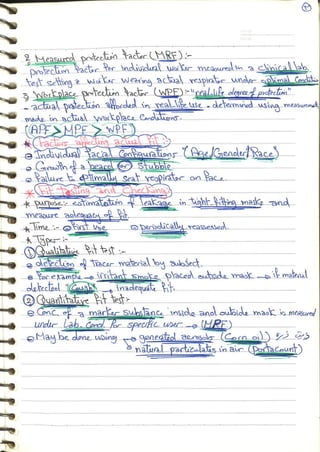 ② Measured protection factor (MRF) :-
protection factor for individual worker measured in a clinical lab.
test setting & worker wearing actual respirator under optimal Condition
③ Workplace protection factor (WPF) :- "real-life degree of protection"
- actual protection afforded in real-life use. determined using measurement
made in actual workplace Conditions.
(APF > MPF > WPF)
* Factors affecting actual fit
Individual Facial Configurations (Age/Gender/Race)
Growth of a beard or Stubble
Failure to optimally seat respirator on face.
* Fit testing and Checking
* purpose:- estimation of leakage in tight fitting masks and
measure adequacy of fit.
* Time:- First use periodically reassessed.
* Types:-
① Qualitative Fit test :-
detection of tracer material by subject.
For example → irritant smoke placed outside mask → if material
detected "Cough" → inadequate fit.
② Quantitative Fit test :-
Conc. of a marker substance inside and outside mask is measured
under Lab. Cond. for specific user → (MPF)
May be done using → generated aerosols (Corn oil) زيت ذرة
→ natural particulates in air (Portacount)